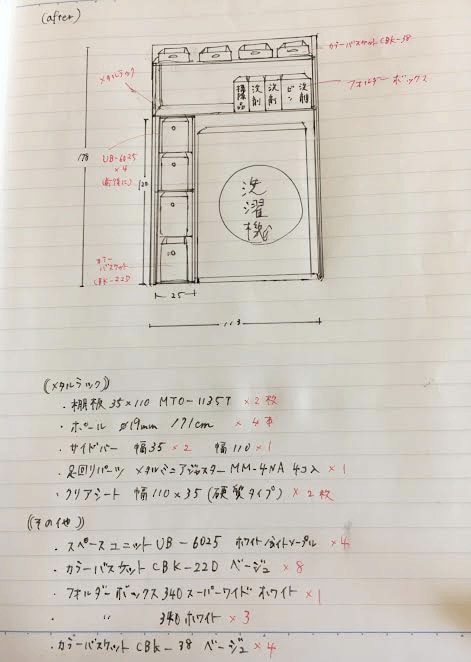 (after)
カラーバスケット CBK-38
メタルラック
フォルダーボックス
掃除品
洗剤
洗剤
ビン
洗剤
178
UB-6025
×4
120
洗濯機
カラー
バスケット
CBK-22D
25
113
《メタルラック》
・棚板 35×110 MTO-1135T ×2枚
・ポール ø19mm 171cm ×4本
・サイドバー 幅35 ×2 幅110 ×1
・足回りパーツ メタルミニアジャスター MM-4NA 4コ入 ×1
・クリアシート 幅110×35 (硬質タイプ) ×2枚
《その他》
・スペースユニット UB-6025 ホワイト/ライトメープル ×4
・カラーバスケット CBK-22D ベージュ ×8
・フォルダーボックス 340 スーパーワイド ホワイト ×1
・ 〃 340 ホワイト ×3
・カラーバスケット CBK-38 ベージュ ×4